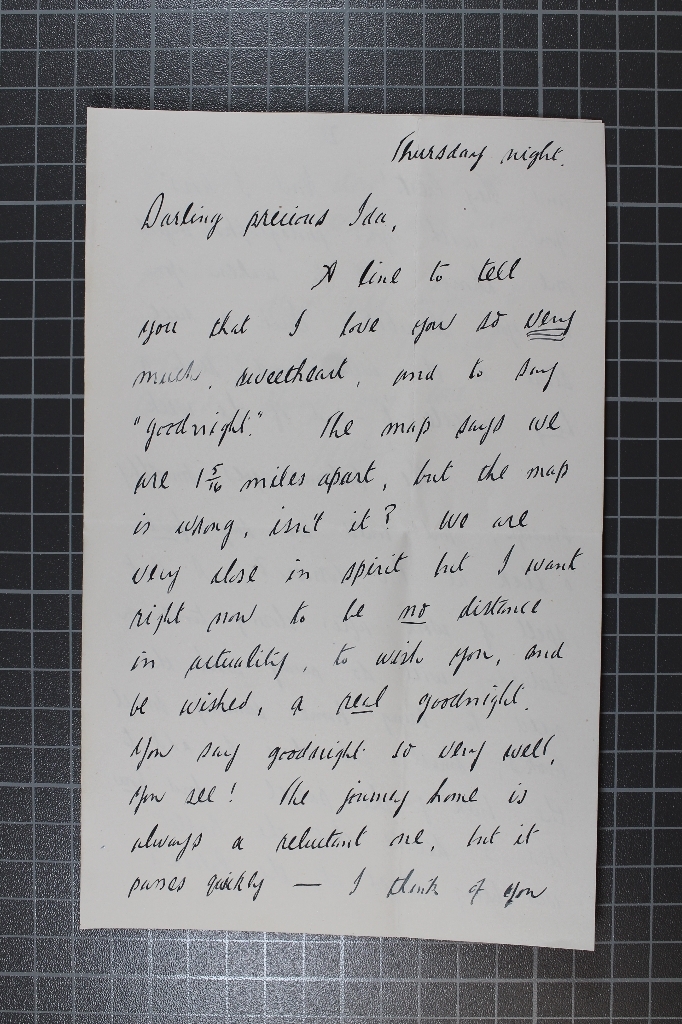 Thursday night.
Darling precious Ida,
A line to tell
you that I love you so very
much, sweetheart, and to say
"goodnight." The map says we
are 1 5/16 miles apart, but the map
is wrong, isn't it? We are
very close in spirit but I want
right now to be no distance
in actuality, to wish you, and
be wished, a real goodnight.
You say goodnight so very well,
you see! The journey home is
always a reluctant one, but it
passes quickly — I think of you